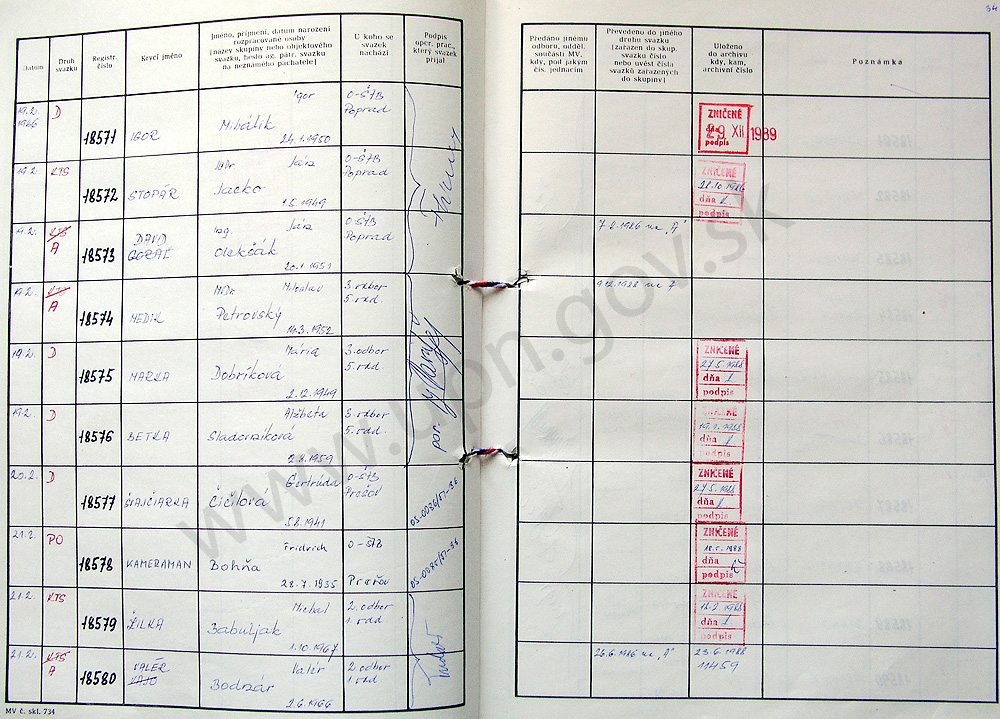 34
Datum
Druh svazku
Registr. číslo
Krycí jméno
Jméno, příjmení, datum narození rozpracované osoby
[název skupiny nebo objektového svazku, heslo ag. pátr. svazku na neznámého pachatele]
U koho se svazek nachází
Podpis oper. prac., který svazek přijal
Předáno jinému odboru, odděl. součásti MV, kdy, pod jakým čís. jednacím
Převedeno do jiného druhu svazku [zařazen do skup. svazku číslo nebo uvést čísla svazků zařazených do skupiny]
Uloženo do archivu kdy, kam, archivní číslo
Poznámka
19.2. 1986 D 18571 IGOR Igor Mihálik 24.1.1950 O-ŠTB Poprad
ZNIČENÉ
29 XII 1989
podpis
19.2. KTS 18572 STOPÁR Jacko 1.5.1949 O-ŠTB Poprad
ZNIČENÉ
dňa
podpis
19.2. KTS A 18573 DAVID GORAĽ Ing. Olekšák 20.1.1951 O-ŠTB Poprad
19.2. A 18574 MEDIK MUDr Miloslav Petrovský 14.3.1952 3. odbor 5. odd.
19.2. D 18575 MARKA Mária Dobríková 2.12.1949 3. odbor 5. odd.
ZNIČENÉ
27.5.1988
dňa
podpis
19.2. D 18576 BETKA Alžbeta 2.8.1959 3. odbor 5. odd.
por.
ZNIČENÉ
dňa
podpis
20.2. D 18577 Gertruda Čičilová 5.8.1941 O-ŠTB Prešov
ZNIČENÉ
27.5.1988
dňa
podpis
21.2. PO 18578 KAMERAMAN Fridrich Bohňa 28.7.1935 O-ŠTB Prešov
ZNIČENÉ
18.5.1988
dňa
podpis
21.2. KTS 18579 ŽILKA Michal Babuljak 1.10.1967 2. odbor 1. odd
ZNIČENÉ
dňa
podpis
21.2. KTS A 18580 VALÉR Valér Bodnár 2.6.1966 2. odbor 1. odd
26.6.1986 na "A"
23.6.1988
11459
MV č. skl. 734
www.upn.gov.sk